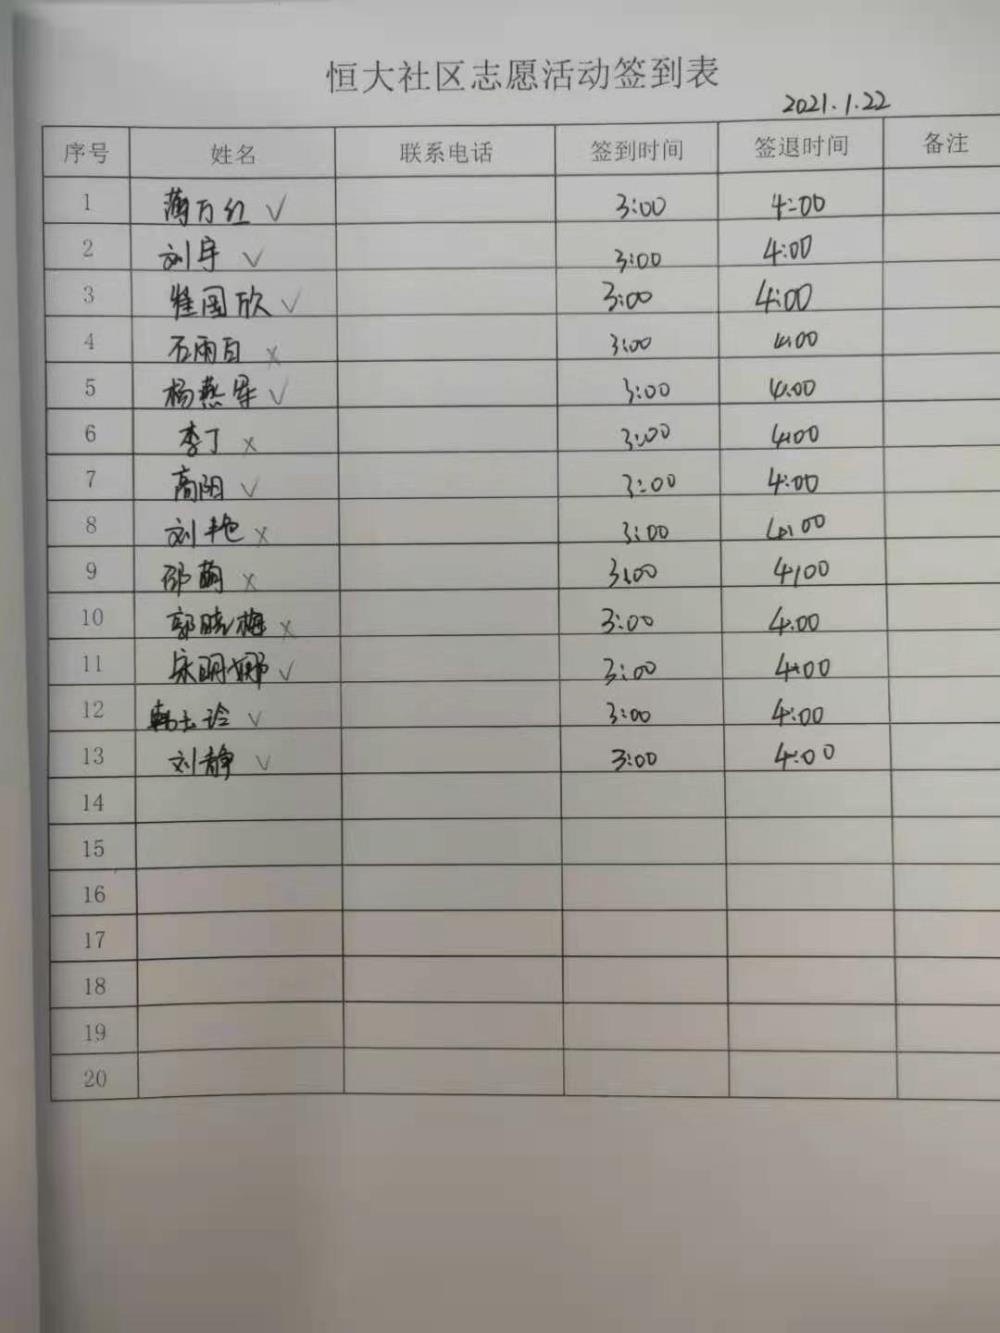 恒大社区志愿活动签到表
2021.1.22
序号 姓名 联系电话 签到时间 签退时间 备注
1 薄万红 ✓ 3:00 4:00
2 刘宇 ✓ 3:00 4:00
3 国欣 ✓ 3:00 4:00
4 石雨 x 3:00 4:00
5 杨燕 ✓ 3:00 4:00
6 李丁 x 3:00 4:00
7 高阳 ✓ 3:00 4:00
8 刘艳 x 3:00 4:00
9 邵萌 x 3:00 4:00
10 郭晓梅 x 3:00 4:00
11 明娜 ✓ 3:00 4:00
12 韩玉玲 ✓ 3:00 4:00
13 刘静 ✓ 3:00 4:00
14
15
16
17
18
19
20